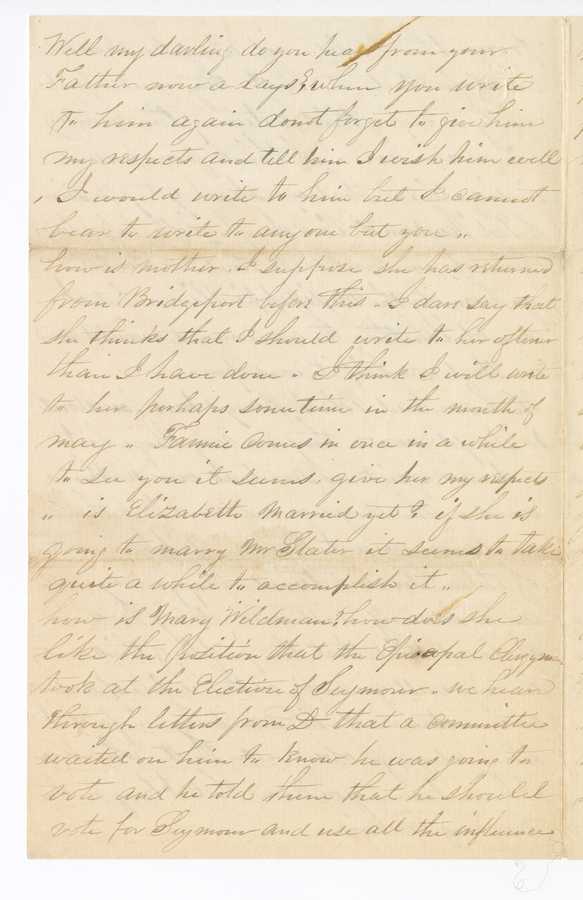 Well my darling do you hear from your
Father now a days, when you write
to him again dont forget to give him
my respects and tell him I wish him well
, I would write to him but I cannot
bear to write to any one but you ..
how is mother. I suppose she has returned
from Bridgeport before this - I dare say that
she thinks that I should write to her oftener
than I have done - I think I will write
to her perhaps sometime in the month of
may .. Fannie comes in once in a while
to see you it seems, give her my respects
.. is Elizabeth Married yet? if she is
going to marry Mr Slater it seems to take
quite a while to accomplish it ..
how is Mary Wildman? how does she
like the Position that the Episcopal Clergyman
took at the Election of Seymour - we hear
through letters from D that a Committee
waited on him to know he was going to
vote and he told them that he should
vote for Seymour and use all the influence